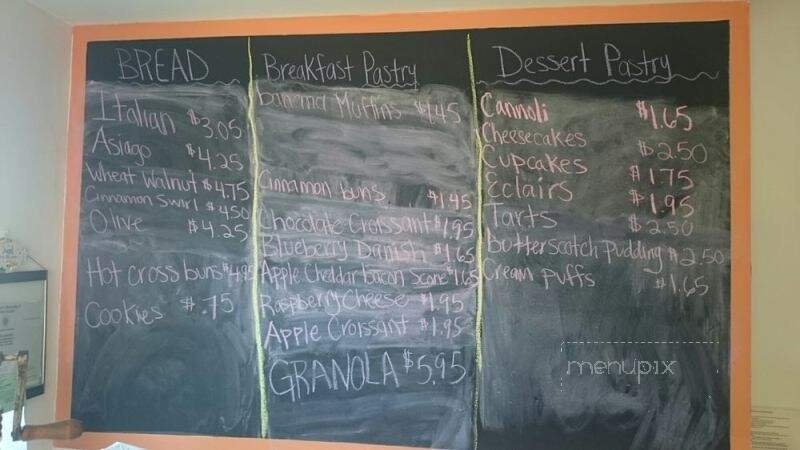 BREAD
Italian $3.05
Asiago $4.25
Wheat Walnut $4.75
Cinnamon Swirl $4.50
Olive $4.25
Hot cross buns $4.95
Cookies $.75
Breakfast Pastry
banana Muffins $1.45
Cinnamon buns $1.45
Chocolate Croissant $1.95
Blueberry Danish $1.65
Apple Cheddar bacon Scone $1.65
Raspberry Cheese $1.95
Apple Croissant $1.95
GRANOLA $5.95
Dessert Pastry
Cannoli $1.65
Cheesecakes $2.50
Cupcakes $1.75
Eclairs $1.95
Tarts $2.50
butterscotch pudding $2.50
Cream Puffs $1.65
menupix